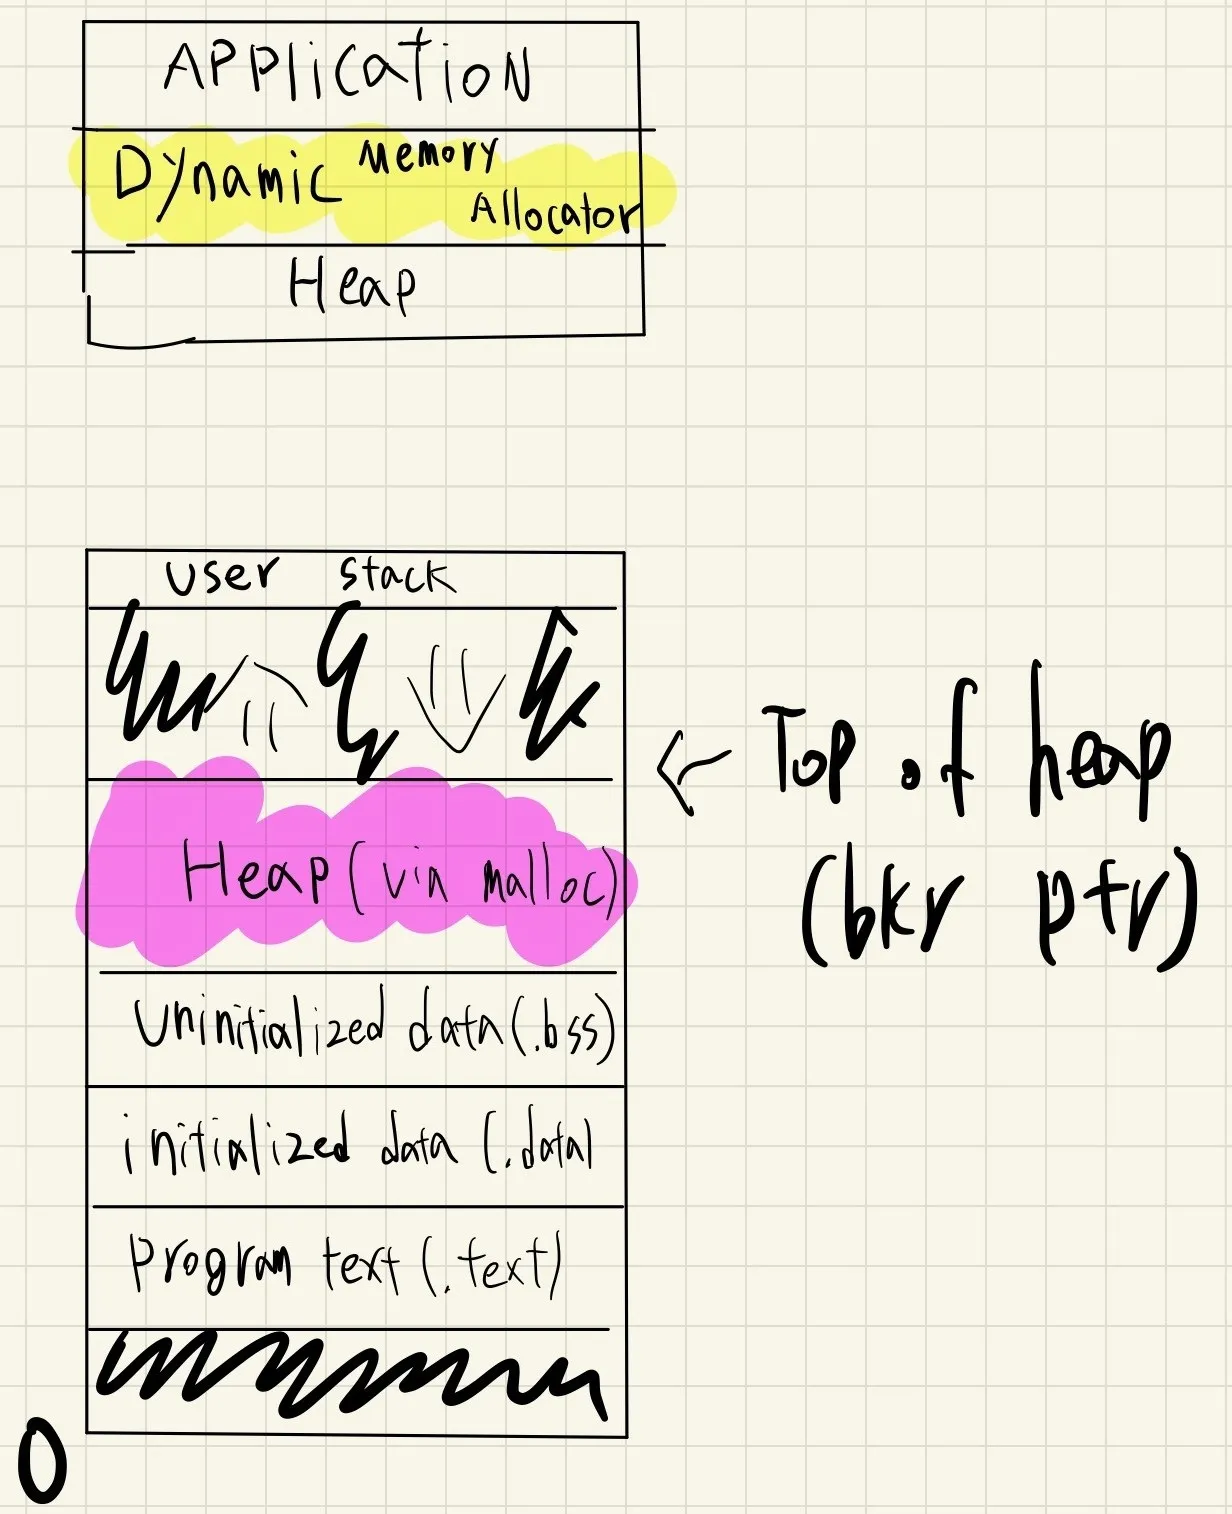 Application
Dynamic Memory
Allocator
Heap
user stack
Heap (via malloc)
Top of heap
(bkr ptr)
Uninitialized data (.bss)
initialized data (.data)
Program text (.text)
0